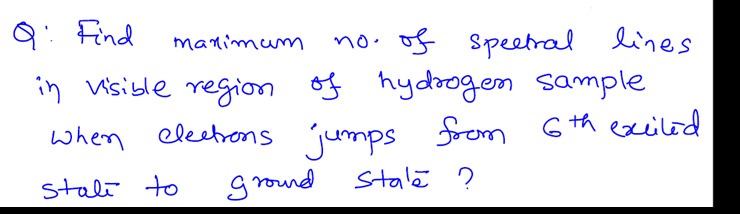 Q: Find maximum no. of spectral lines
in visible region of hydrogen sample
when electrons jumps from 6th excited
state to ground state ?